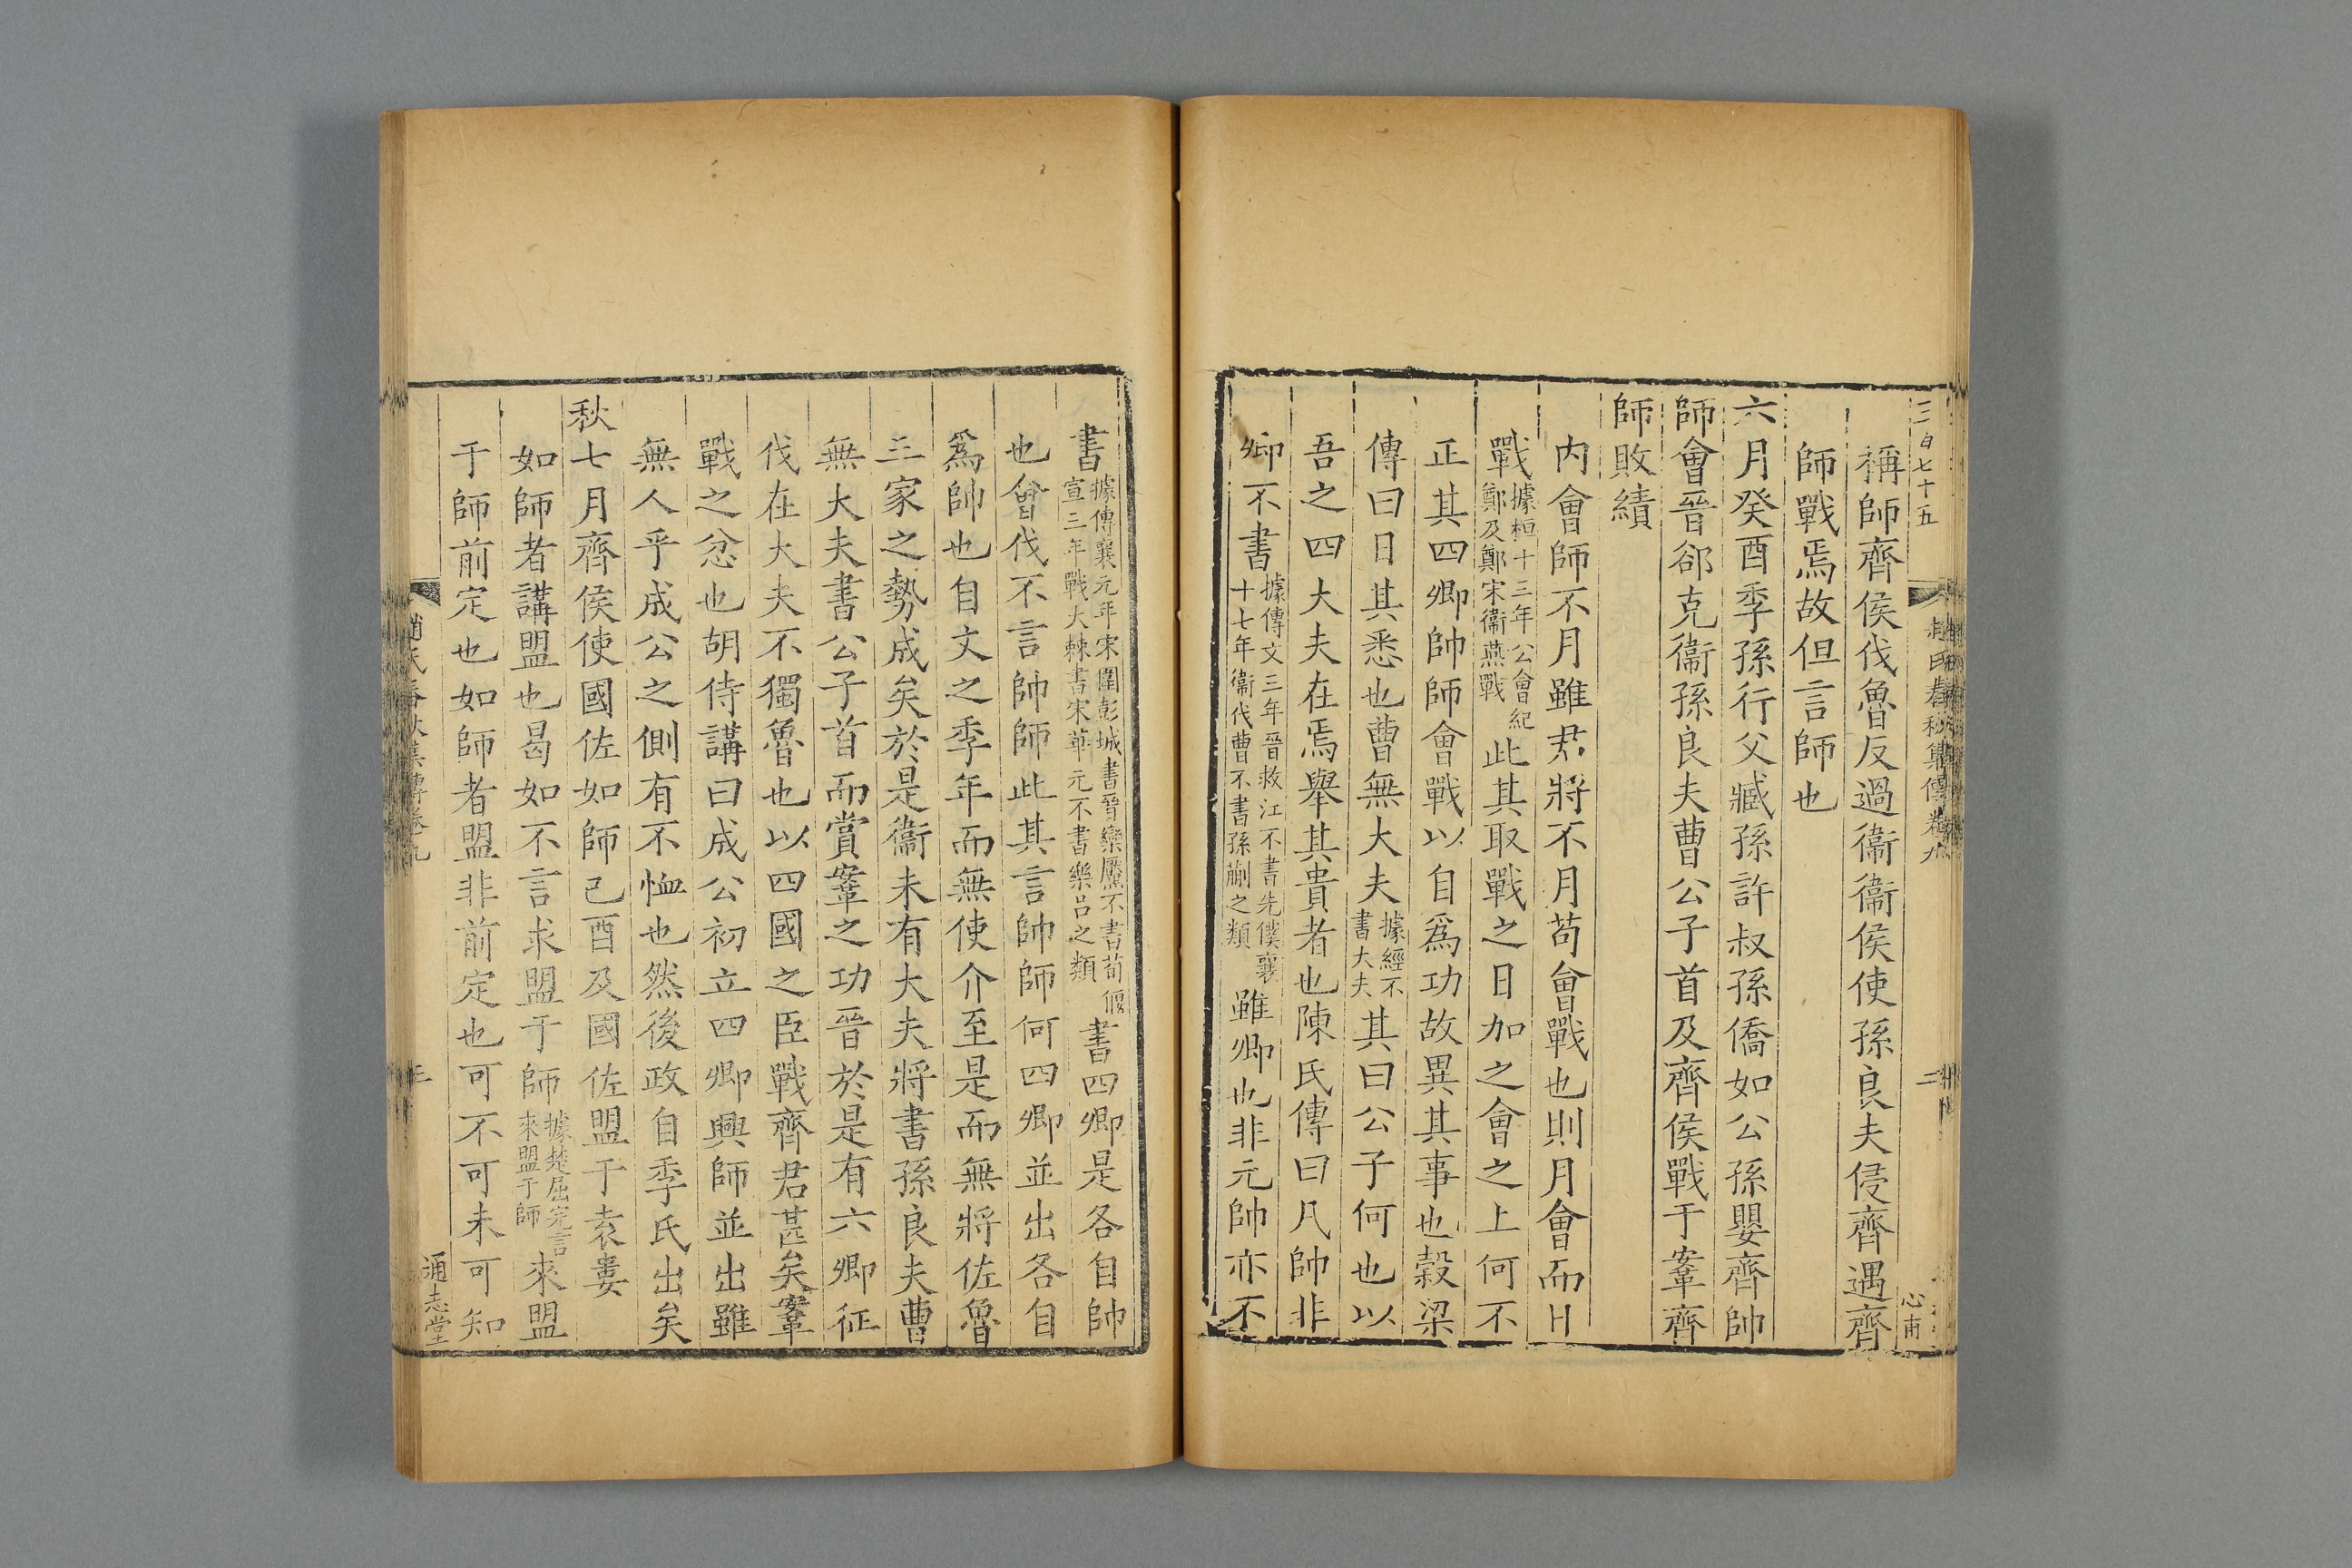 三百七十五
春秋集傳卷九
二
心甫
稱師齊侯伐魯反過衞衞侯使孫良夫侵齊遇齊
師戰焉故但言師也
六月癸酉季孫行父臧孫許叔孫僑如公孫嬰齊帥
師會晉郤克衞孫良夫曹公子首及齊侯戰于鞌齊
師敗績
内會師不月雖君將不月苟會戰也則月會而日
戰據桓十三年公會紀鄭及鄭宋衞燕戰此其取戰之日加之會之上何不
正其四卿帥師會戰以自爲功故異其事也榖梁
傳曰日其悉也曹無大夫據經不書大夫其曰公子何也以
吾之四大夫在焉舉其貴者也陳氏傳曰凡帥非
卿不書據傳文三年晉救江不書先僕襄十七年衞伐曹不書孫蒯之類雖卿也非元帥亦不
書據傳襄元年宋圍彭城書晉欒黶不書荀偃宣三年戰大棘書宋華元不書樂呂之類書四卿是各自帥
也會伐不言帥師此其言帥師何四卿並出各自
爲帥也自文之季年而無使介至是而無將佐魯
三家之勢成矣於是衞未有大夫將書孫良夫曹
無大夫書公子首而賞鞌之功晉於是有六卿征
伐在大夫不獨魯也以四國之臣戰齊君甚矣鞌
戰之忿也胡侍講曰成公初立四卿興師並出雖
無人乎成公之側有不恤也然後政自季氏出矣
秋七月齊侯使國佐如師己酉及國佐盟于袁婁
如師者講盟也曷如不言求盟于師據楚屈完言來盟于師來盟
于師前定也如師者盟非前定也可不可未可知
趙氏春秋集傳卷九
三
通志堂